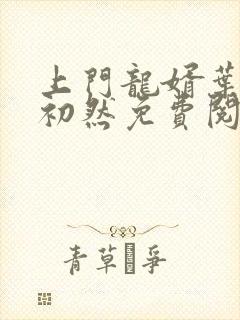 上門龍婿葉
初然免費閱
青草爭